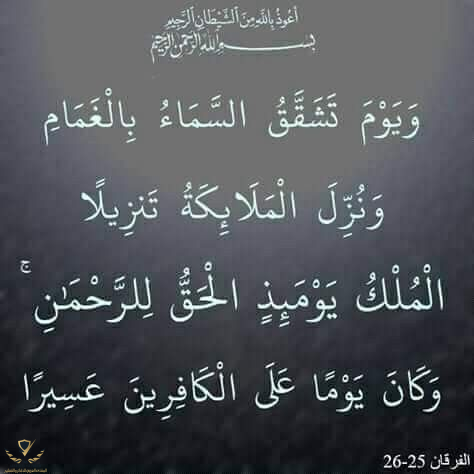 أعوذ بالله من الشيطان الرجيم
بسم الله الرحمن الرحيم
وَيَوْمَ تَشَقَّقُ السَّمَاءُ بِالْغَمَامِ
وَنُزِّلَ الْمَلَائِكَةُ تَنزِيلًا
الْمُلْكُ يَوْمَئِذٍ الْحَقُّ لِلرَّحْمَٰنِ ۚ
وَكَانَ يَوْمًا عَلَى الْكَافِرِينَ عَسِيرًا
الفرقان 25-26